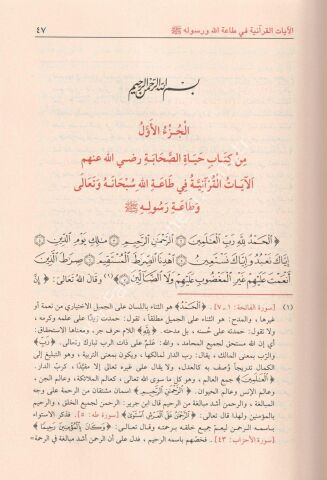 الآيات القرآنية في طاعة الله ورسوله ﷺ ٤٧
بسم الله الرحمن الرحيم
الْجُزْءُ الأَوَّلُ
مِنْ كِتَابِ حَيَاةِ الصَّحَابَةِ رضي الله عنهم
الآيَاتُ الْقُرْآنِيَّةُ فِي طَاعَةِ اللهِ سُبْحَانَهُ وَتَعَالَى
وَطَاعَةِ رَسُولِهِ ﷺ
﴿ الْحَمْدُ لِلَّهِ رَبِّ الْعَالَمِينَ ۞ الرَّحْمَٰنِ الرَّحِيمِ ۞ مَالِكِ يَوْمِ الدِّينِ ۞
إِيَّاكَ نَعْبُدُ وَإِيَّاكَ نَسْتَعِينُ ۞ اهْدِنَا الصِّرَاطَ الْمُسْتَقِيمَ ۞ صِرَاطَ الَّذِينَ
أَنْعَمْتَ عَلَيْهِمْ غَيْرِ الْمَغْضُوبِ عَلَيْهِمْ وَلَا الضَّالِّينَ ﴾(١) وقال الله تعالىٰ: ﴿ إِنَّ
(١) [سورة الفاتحة: ١ - ٧]. ﴿الْحَمْدُ﴾ هو الثناء باللسان على الجميل الاختياري من نعمة أو
غيرها، والمدح: هو الثناء على الجميل مطلقاً، تقول: حمدت زيداً على علمه وكرمه،
ولا تقول: حمدته على حُسنه، بل مدحته. ﴿لِلَّهِ﴾ اللام حرف جر، ومعناها الاستحقاق:
أي إن الله مستحق لجميع المحامد، والله: علم على ذات الرب تبارك وتعالى. ﴿رَبِّ﴾
والرب بمعنى المالك، يقال: رب الدار لمالكها، ويكون بمعنى التربية، وهي تبليغ الشيء إلى
الكمال تدريجاً وُصف به كالعدل، ولا يقال على غيره تعالى إلا مقيَّداً: كرب الدار.
﴿الْعَالَمِينَ﴾ جمع العالم، وهو كل ما سوى الله تعالى، كعالم الملائكة، وعالم الجن،
وعالم الإنس وعالم الحيوان. ﴿الرَّحْمَٰنِ الرَّحِيمِ﴾ اسمان مشتقان من الرحمة على وجه
المبالغة، والرحمن أشد مبالغة من الرحيم قال ابن جرير: الرحمن لجميع الخلق، والرحيم
بالمؤمنين ولهذا قال تعالى: ﴿الرَّحْمَٰنُ عَلَى الْعَرْشِ اسْتَوَىٰ﴾ [سورة طه: ٥]. فذكر الاستواء
باسمه الرحمن ليعمّ جميع خلقه برحمته وقال: ﴿وَكَانَ بِالْمُؤْمِنِينَ رَحِيمًا﴾
[سورة الأحزاب: ٤٣]. فخصهم باسمه الرحيم، فدل على أن الرحمن أشد مبالغة في الرحمة=